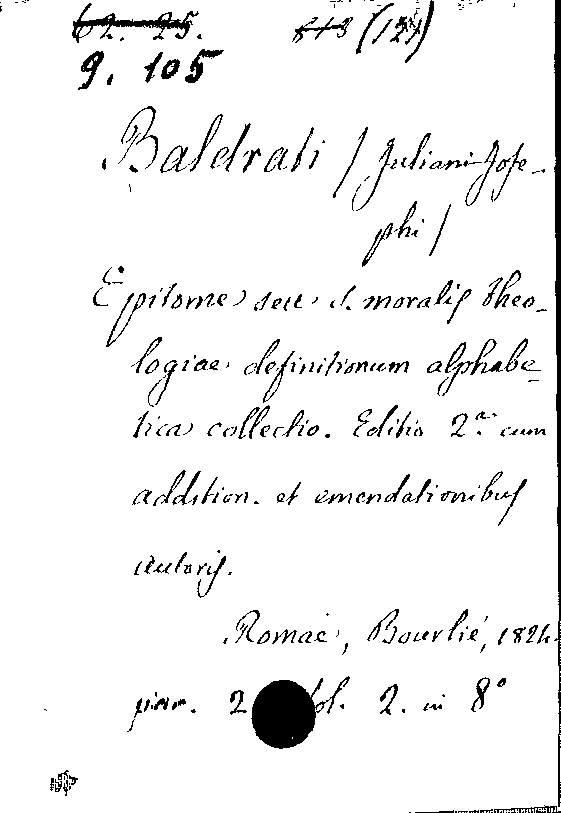 62. 25. 813 (127)
9. 105
Baldrati / Juliani Jose-
phi /
Epitome seu S. moralis theo-
logiae definitionum alphabe-
tica collectio. Editio 2.ª cum
addition. et emendationibus
autoris.
Romae, Bourlié, 1824.
2 vol. 2. in 8°